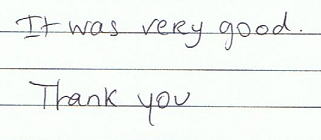 It was very good.
Thank you